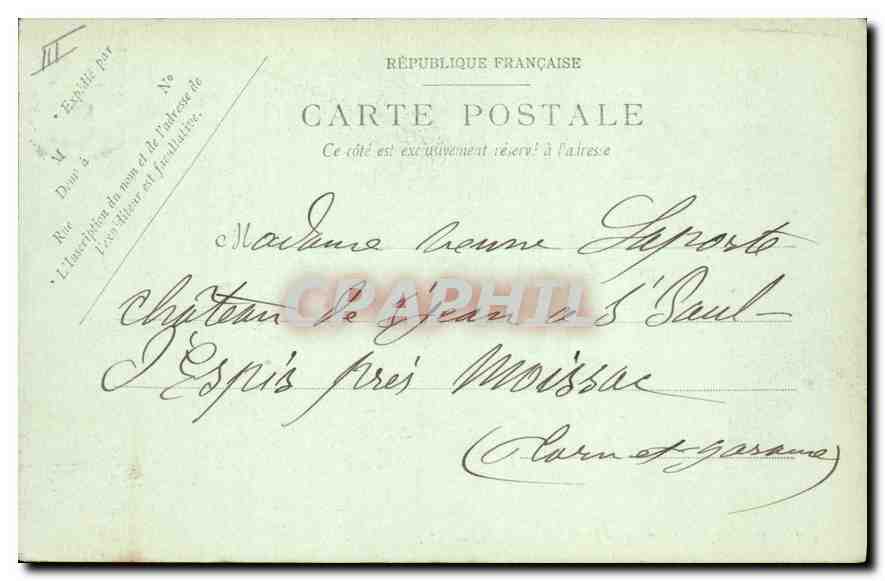 III
RÉPUBLIQUE FRANÇAISE
CARTE POSTALE
Ce côté est exclusivement réservé à l'adresse
* Expédié par
M No
Demt à
Rue
* L'Inscription du nom et de l'adresse de
l'expéditeur est facultative.
Madame veuve Laporte
château de à St Paul-
d'Espis près Moissac
(Tarn et garonne)
CPAPHIL